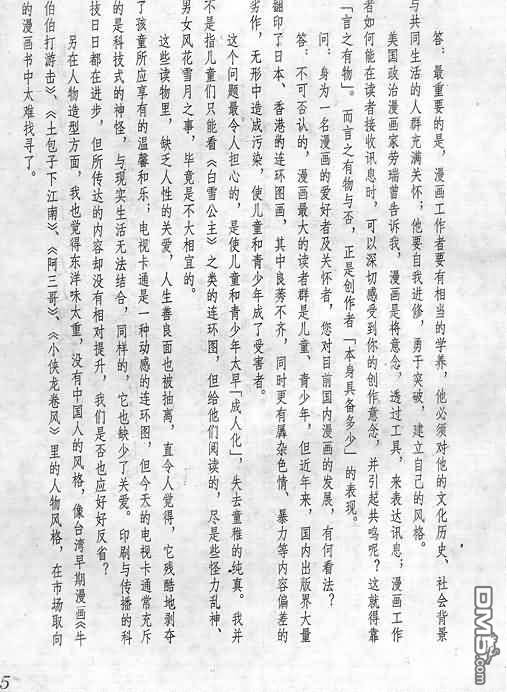 答：最重要的是，漫画工作者要有相当的学养，他必须对他的文化历史、社会背景
与共同生活的人群充满关怀；他要自我进修，勇于突破，建立自己的风格。
美国政治漫画家劳瑞曾告诉我，漫画是将意念，透过工具，来表达讯息；漫画工作
者如何能在读者接收讯息时，可以深切感受到你的创作意念，并引起共鸣呢？这就得靠
「言之有物」。而言之有物与否，正是创作者「本身具备多少」的表现。
问：身为一名漫画的爱好者及关怀者，您对目前国内漫画的发展，有何看法？
答：不可否认的，漫画最大的读者群是儿童、青少年，但近年来，国内出版界大量
翻印了日本、香港的连环图画，其中良莠不齐，同时更有孱杂色情、暴力等内容偏差的
劣作，无形中造成污染，使儿童和青少年成了受害者。
这个问题最令人担心的，是使儿童和青少年太早「成人化」，失去童稚的纯真。我并
不是指儿童们只能看《白雪公主》之类的连环图，但给他们阅读的，尽是些怪力乱神、
男女风花雪月之事，毕竟是不大相宜的。
这些读物里，缺乏人性的关爱，人生善良面也被抽离，直令人觉得，它残酷地剥夺
了孩童所应享有的温馨和乐；电视卡通是一种动感的连环图，但今天的电视卡通常充斥
的是科技式的神怪，与现实生活无法结合，同样的，它也缺少了关爱。印刷与传播的科
技日日都在进步，但所传达的内容却没有相对提升，我们是否也应好好反省？
另在人物造型方面，我也觉得东洋味太重，没有中国人的风格，像台湾早期漫画《牛
伯伯打游击》、《土包子下江南》、《阿三哥》、《小侠龙卷风》里的人物风格，在市场取向
的漫画书中太难找寻了。
5
DM5.com